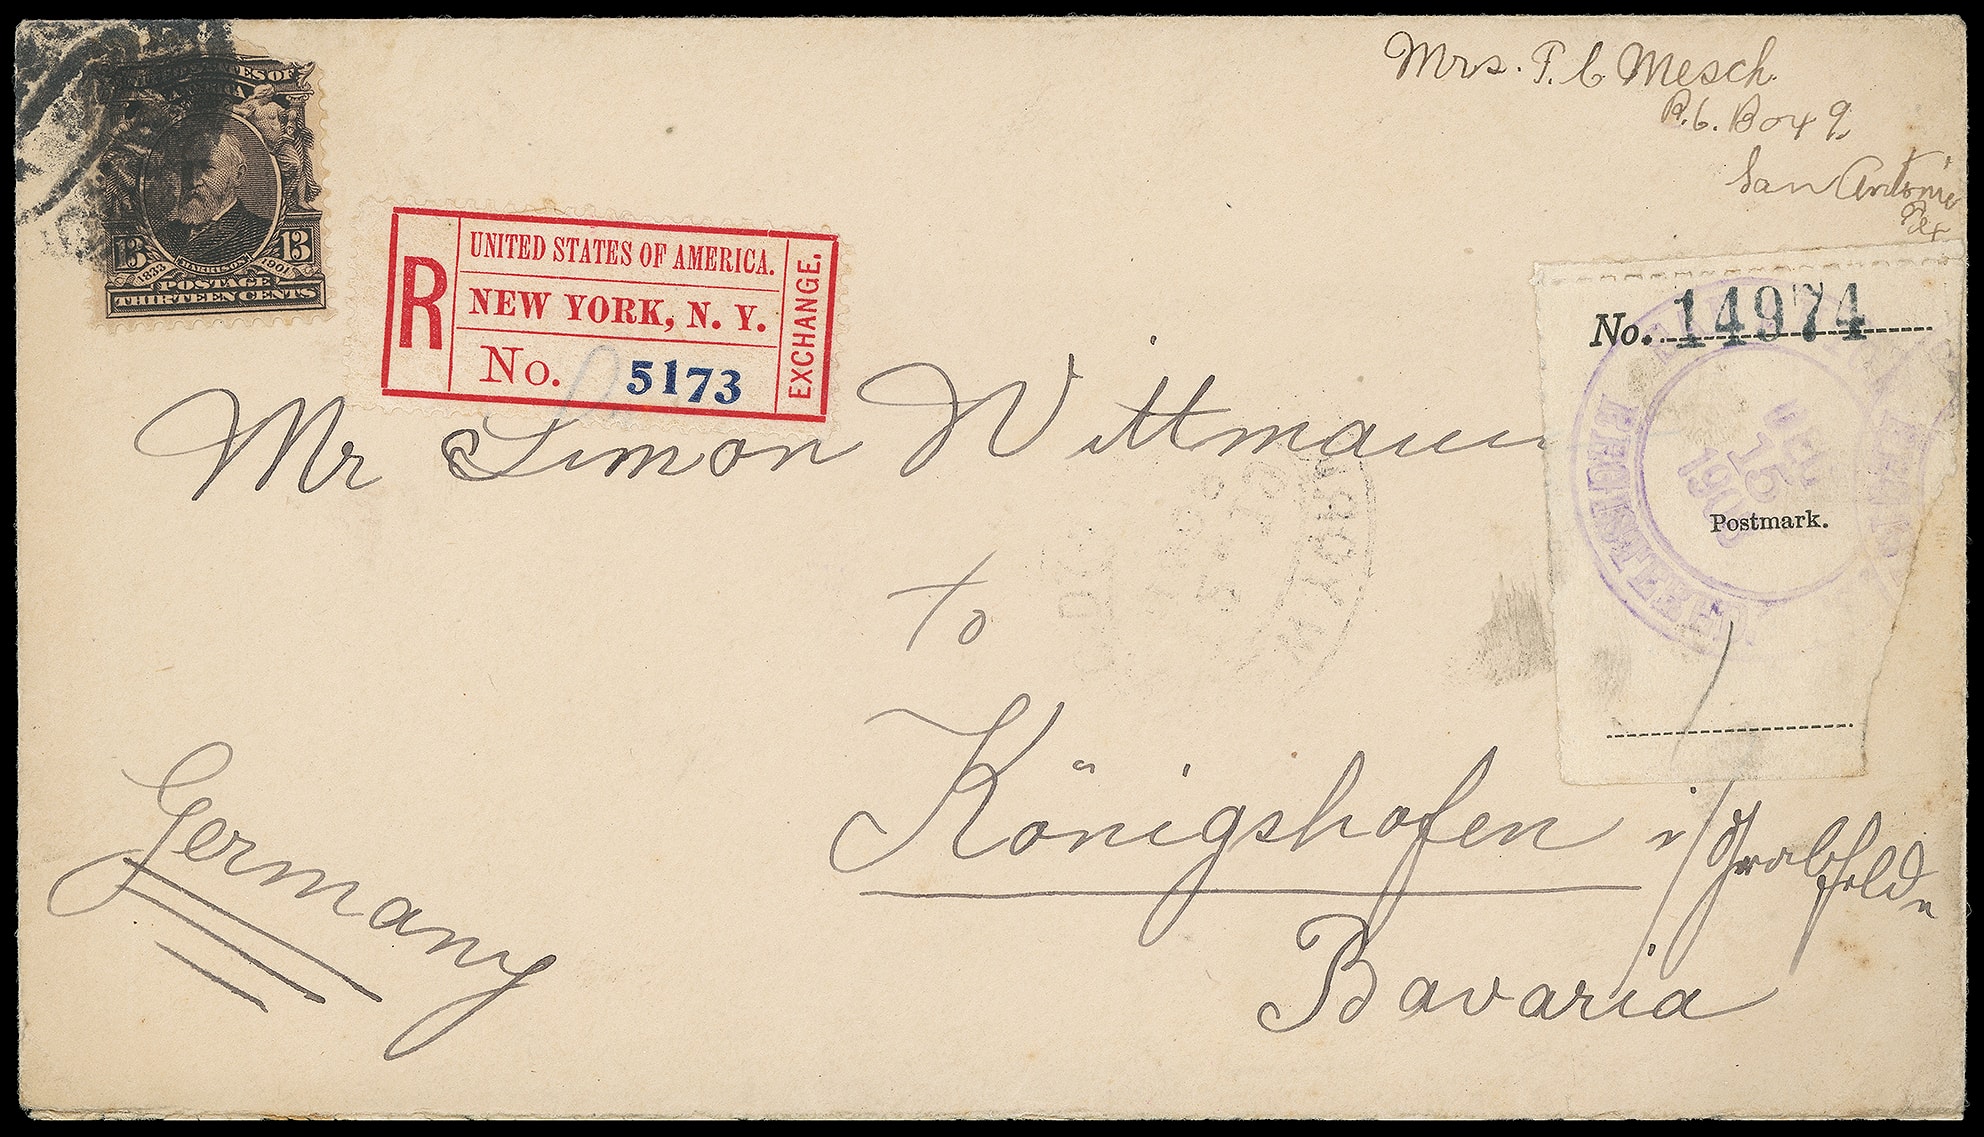 Mrs. T. C. Mesch
P.O. Box 9,
San Antonio
Tex
UNITED STATES OF
AMERICA
13 13
1833 HARRISON 1901
POSTAGE
THIRTEEN CENTS
R
UNITED STATES OF AMERICA.
NEW YORK, N. Y.
No. 5173
EXCHANGE.
No. 14974
REGISTERED
15
190
Postmark.
Mr Simon Wittmann
to
Königshofen i/Grabfeld
Bavaria
Germany